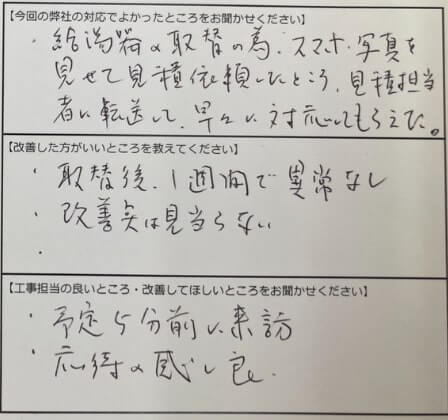 【今回の弊社の対応でよかったところをお聞かせください】
・給湯器の取替の為、スマホ写真を
見せて見積依頼したところ、見積担当
者に転送して、早々に対応してもらえた。
【改善した方がいいところを教えてください】
・取替後、1週間で異常なし
・改善点は見当らない
・
【工事担当の良いところ・改善してほしいところをお聞かせください】
・予定5分前に来訪
・応待の感じ良し